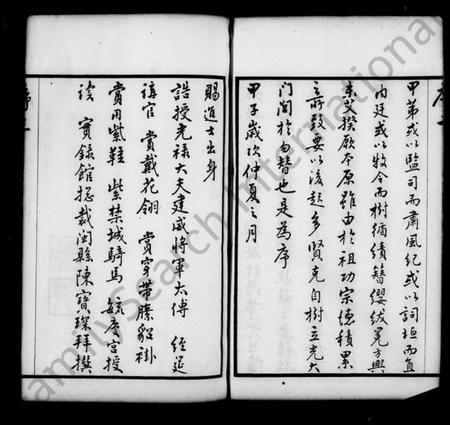 甲第或以監司而肅風紀或以詞垣而直
內廷或以牧令而樹循績簪纓紱冕方興
未艾揆厥本原雖由於祖功宗德積累
之所致要以後起多賢克自樹立光大
門閭於勿替也是為序
甲子歲次仲夏之月
賜進士出身
誥授光祿大夫建威將軍太傅 經筵
講官 賞戴花翎 賞穿帶膆貂褂
賞用紫韁 紫禁城騎馬 毓慶宮授
讀 實錄館總裁閩縣陳寶琛拜撰
FamilySearch International